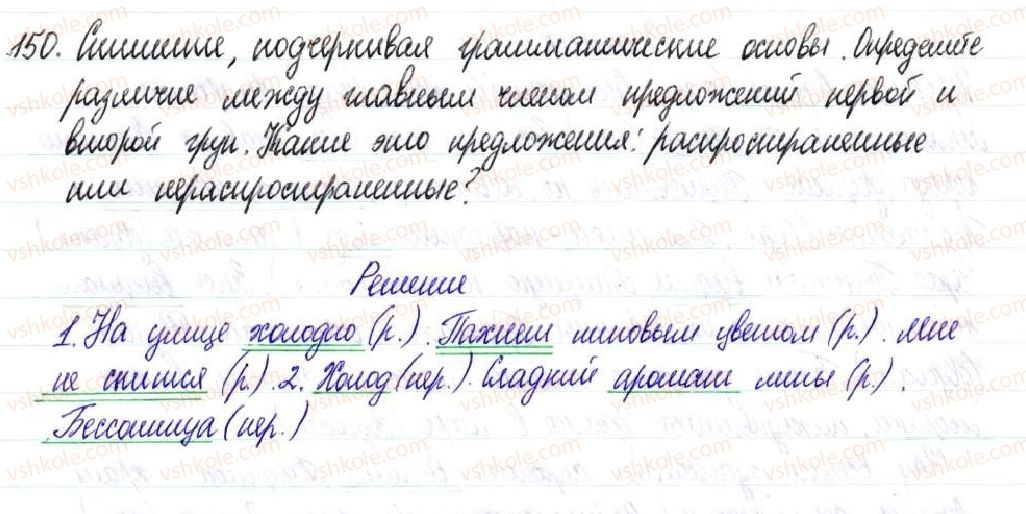 150. Спишите, подчеркивая грамматические основы. Определите
различие между главным членом предложений первой и
второй груп. Какие это предложения: распространенные
или нераспространенные?
Решение
1. На улице холодно (р.). Пахнет липовым цветом (р.). Мне
не спится (р.). 2. Холод (нер.). Сладкий аромат липы (р.).
Бессонница (нер.)
vshkole.com